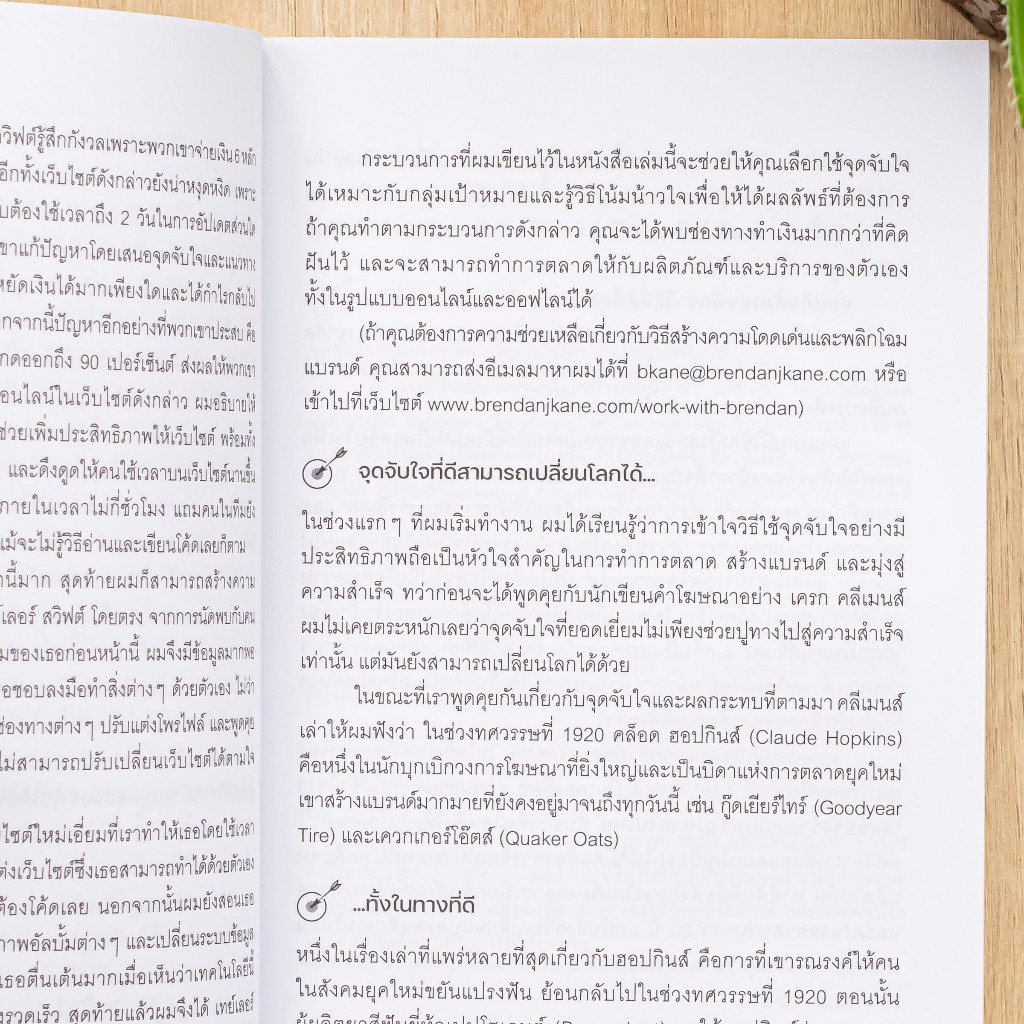 วิฟต์รู้สึกกังวลเพราะพวกเขาจ่ายเงิน 6 หลัก
อีกทั้งเว็บไซต์ดังกล่าวยังน่าหงุดหงิด เพราะ
ต้องใช้เวลาถึง 2 วันในการอัปเดตส่วนใด
ขาแก้ปัญหาโดยเสนอจุดจับใจและแนวทาง
หยัดเงินได้มากเพียงใดและได้กำไรกลับไป
กจากนี้ปัญหาอีกอย่างที่พวกเขาประสบ คือ
กดออกถึง 90 เปอร์เซ็นต์ ส่งผลให้พวกเขา
อนไลน์ในเว็บไซต์ดังกล่าว ผมอธิบายให้
ช่วยเพิ่มประสิทธิภาพให้เว็บไซต์ พร้อมทั้ง
และดึงดูดให้คนใช้เวลาบนเว็บไซต์นานขึ้น
ภายในเวลาไม่กี่ชั่วโมง แถมคนในทีมยัง
ม้จะไม่รู้วิธีอ่านและเขียนโค้ดเลยก็ตาม
นี้มาก สุดท้ายผมก็สามารถสร้างความ
ลอร์ สวิฟต์ โดยตรง จากการนัดพบกับคน
มของเธอก่อนหน้านี้ ผมจึงมีข้อมูลมากพอ
อชอบลงมือทำสิ่งต่างๆ ด้วยตัวเอง ไม่ว่า
ช่องทางต่างๆ ปรับแต่งโพรไฟล์ และพูดคุย
ไม่สามารถปรับเปลี่ยนเว็บไซต์ได้ตามใจ
ไซต์ใหม่เอี่ยมที่เราทำให้เธอโดยใช้เวลา
ต่งเว็บไซต์ซึ่งเธอสามารถทำได้ด้วยตัวเอง
ต้องโค้ดเลย นอกจากนั้นผมยังสอนเธอ
ภาพอัลบั้มต่างๆ และเปลี่ยนระบบข้อมูล
เธอตื่นเต้นมากเมื่อเห็นว่าเทคโนโลยีนี้
งรวดเร็ว สุดท้ายแล้วผมจึงได้ เทย์เลอร์
กระบวนการที่ผมเขียนไว้ในหนังสือเล่มนี้จะช่วยให้คุณเลือกใช้จุดจับใจ
ได้เหมาะกับกลุ่มเป้าหมายและรู้วิธีโน้มน้าวใจเพื่อให้ได้ผลลัพธ์ที่ต้องการ
ถ้าคุณทำตามกระบวนการดังกล่าว คุณจะได้พบช่องทางทำเงินมากกว่าที่คิด
ฝันไว้ และจะสามารถทำการตลาดให้กับผลิตภัณฑ์และบริการของตัวเอง
ทั้งในรูปแบบออนไลน์และออฟไลน์ได้
(ถ้าคุณต้องการความช่วยเหลือเกี่ยวกับวิธีสร้างความโดดเด่นและพลิกโฉม
แบรนด์ คุณสามารถส่งอีเมลมาหาผมได้ที่ bkane@brendanjkane.com หรือ
เข้าไปที่เว็บไซต์ www.brendanjkane.com/work-with-brendan)
จุดจับใจที่ดีสามารถเปลี่ยนโลกได้...
ในช่วงแรกๆ ที่ผมเริ่มทำงาน ผมได้เรียนรู้ว่าการเข้าใจวิธีใช้จุดจับใจอย่างมี
ประสิทธิภาพถือเป็นหัวใจสำคัญในการทำการตลาด สร้างแบรนด์ และมุ่งสู่
ความสำเร็จ ทว่าก่อนจะได้พูดคุยกับนักเขียนคำโฆษณาอย่าง เครก คลีเมนส์
ผมไม่เคยตระหนักเลยว่าจุดจับใจที่ยอดเยี่ยมไม่เพียงช่วยปูทางไปสู่ความสำเร็จ
เท่านั้น แต่มันยังสามารถเปลี่ยนโลกได้ด้วย
ในขณะที่เราพูดคุยกันเกี่ยวกับจุดจับใจและผลกระทบที่ตามมา คลีเมนส์
เล่าให้ผมฟังว่า ในช่วงทศวรรษที่ 1920 คล็อด ฮอปกินส์ (Claude Hopkins)
คือหนึ่งในนักบุกเบิกวงการโฆษณาที่ยิ่งใหญ่และเป็นบิดาแห่งการตลาดยุคใหม่
เขาสร้างแบรนด์มากมายที่ยังคงอยู่มาจนถึงทุกวันนี้ เช่น กู๊ดเยียร์ไทร์ (Goodyear
Tire) และเควกเกอร์โอ๊ตส์ (Quaker Oats)
...ทั้งในทางที่ดี
หนึ่งในเรื่องเล่าที่แพร่หลายที่สุดเกี่ยวกับฮอปกินส์ คือการที่เขารณรงค์ให้คน
ในสังคมยุคใหม่ขยันแปรงฟัน ย้อนกลับไปในช่วงทศวรรษที่ 1920 ตอนนั้น